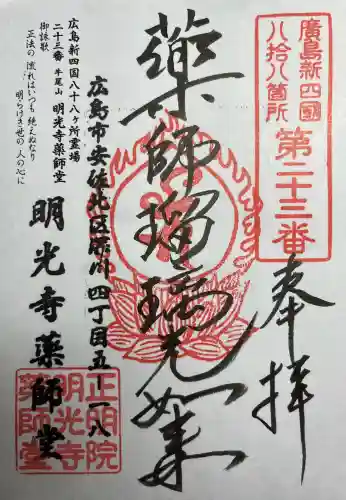 廣島新四國
八拾八箇所
第二十三番
奉拝
藥師瑠璃光如来
広島新四国八十八ヶ所霊場
二十三番 牛尾山 明光寺薬師堂
御詠歌
正法の 流れはいつも 絶えぬなり
明らけき世の 人の心に
広島市安佐北区深川四丁目五ー八
明光寺薬師堂
正明院
明光寺
薬師堂